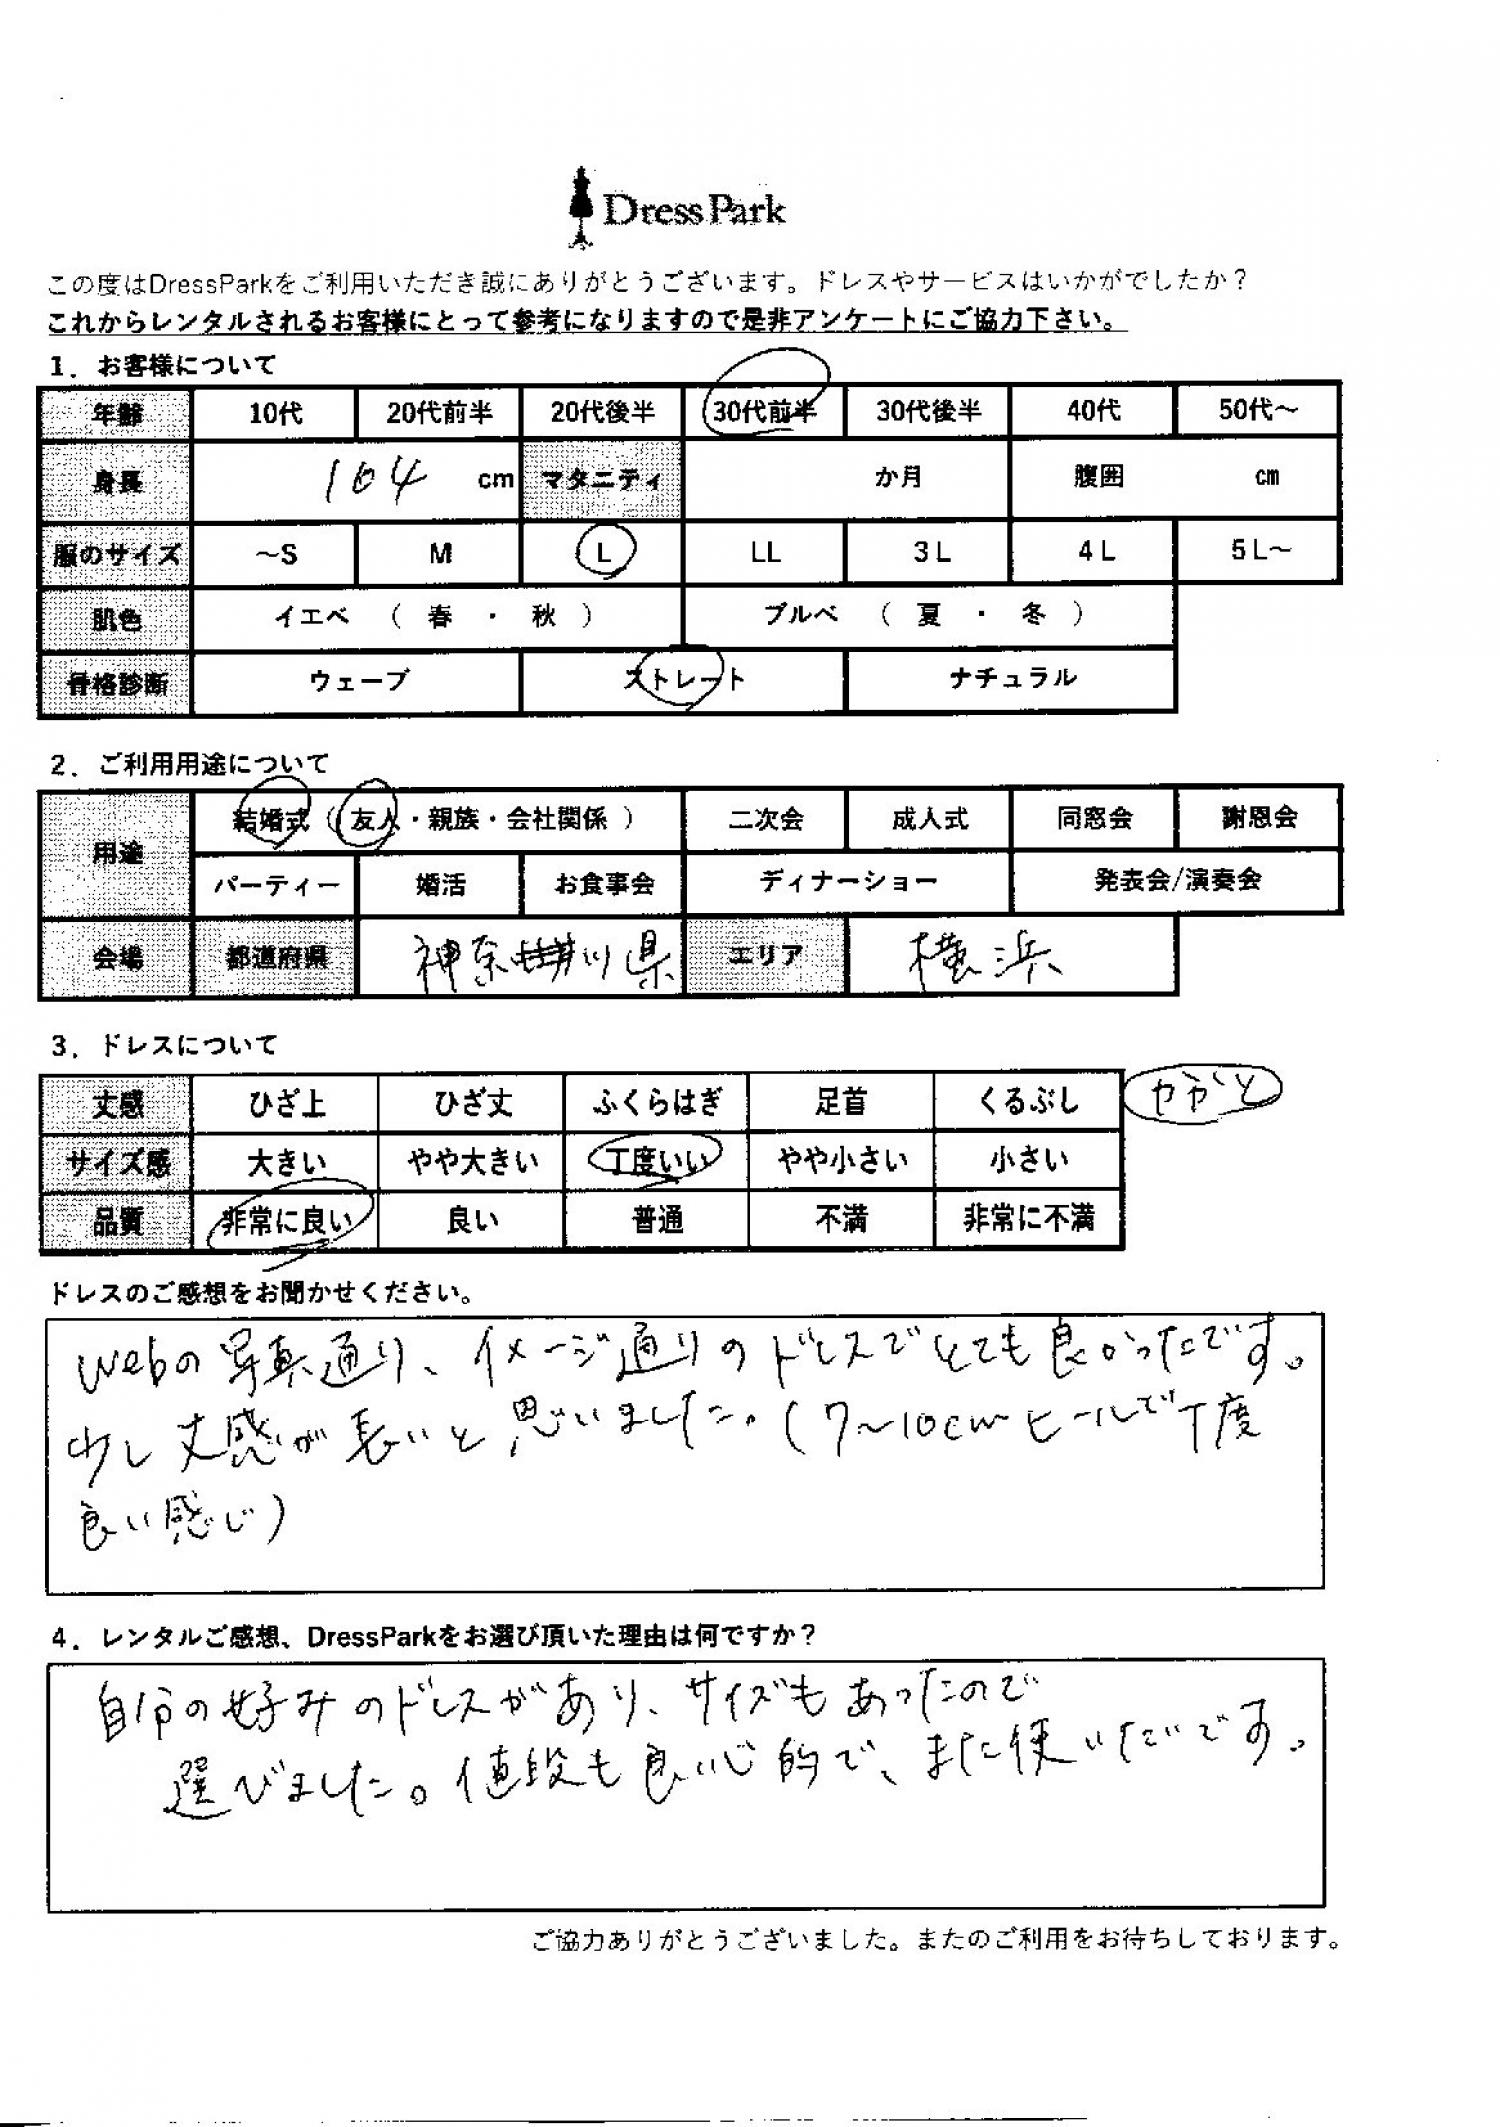 DressPark
この度はDressParkをご利用いただき誠にありがとうございます。ドレスやサービスはいかがでしたか？
これからレンタルされるお客様にとって参考になりますので是非アンケートにご協力下さい。
1．お客様について
年齢 10代 20代前半 20代後半 30代前半 30代後半 40代 50代～
身長 164 cm マタニティ か月 腹囲 cm
服のサイズ ～S M L LL 3L 4L 5L～
肌色 イエベ （ 春 ・ 秋 ） ブルベ （ 夏 ・ 冬 ）
骨格診断 ウェーブ ストレート ナチュラル
2．ご利用用途について
用途 結婚式（友人・親族・会社関係） 二次会 成人式 同窓会 謝恩会
パーティー 婚活 お食事会 ディナーショー 発表会/演奏会
会場 都道府県 神奈川県 エリア 横浜
3．ドレスについて
丈感 ひざ上 ひざ丈 ふくらはぎ 足首 くるぶし かかと
サイズ感 大きい やや大きい 丁度いい やや小さい 小さい
品質 非常に良い 良い 普通 不満 非常に不満
ドレスのご感想をお聞かせください。
Webの写真通り、イメージ通りのドレスでとても良かったです。
少し丈感が長いと思いました。(7～10cmヒールで丁度
良い感じ)
4．レンタルご感想、DressParkをお選び頂いた理由は何ですか？
自分の好みのドレスがあり、サイズもあったので
選びました。値段も良心的で、また使いたいです。
ご協力ありがとうございました。またのご利用をお待ちしております。